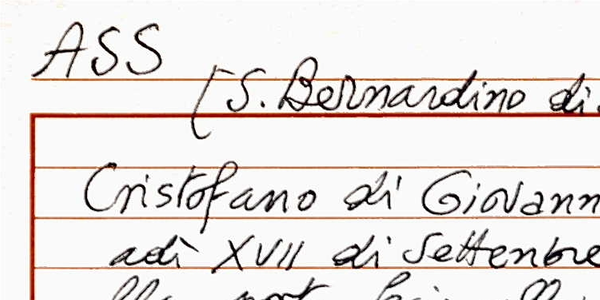 ASS
[S. Bernardino di
Cristofano di Giovann
adì XVII di Settembre